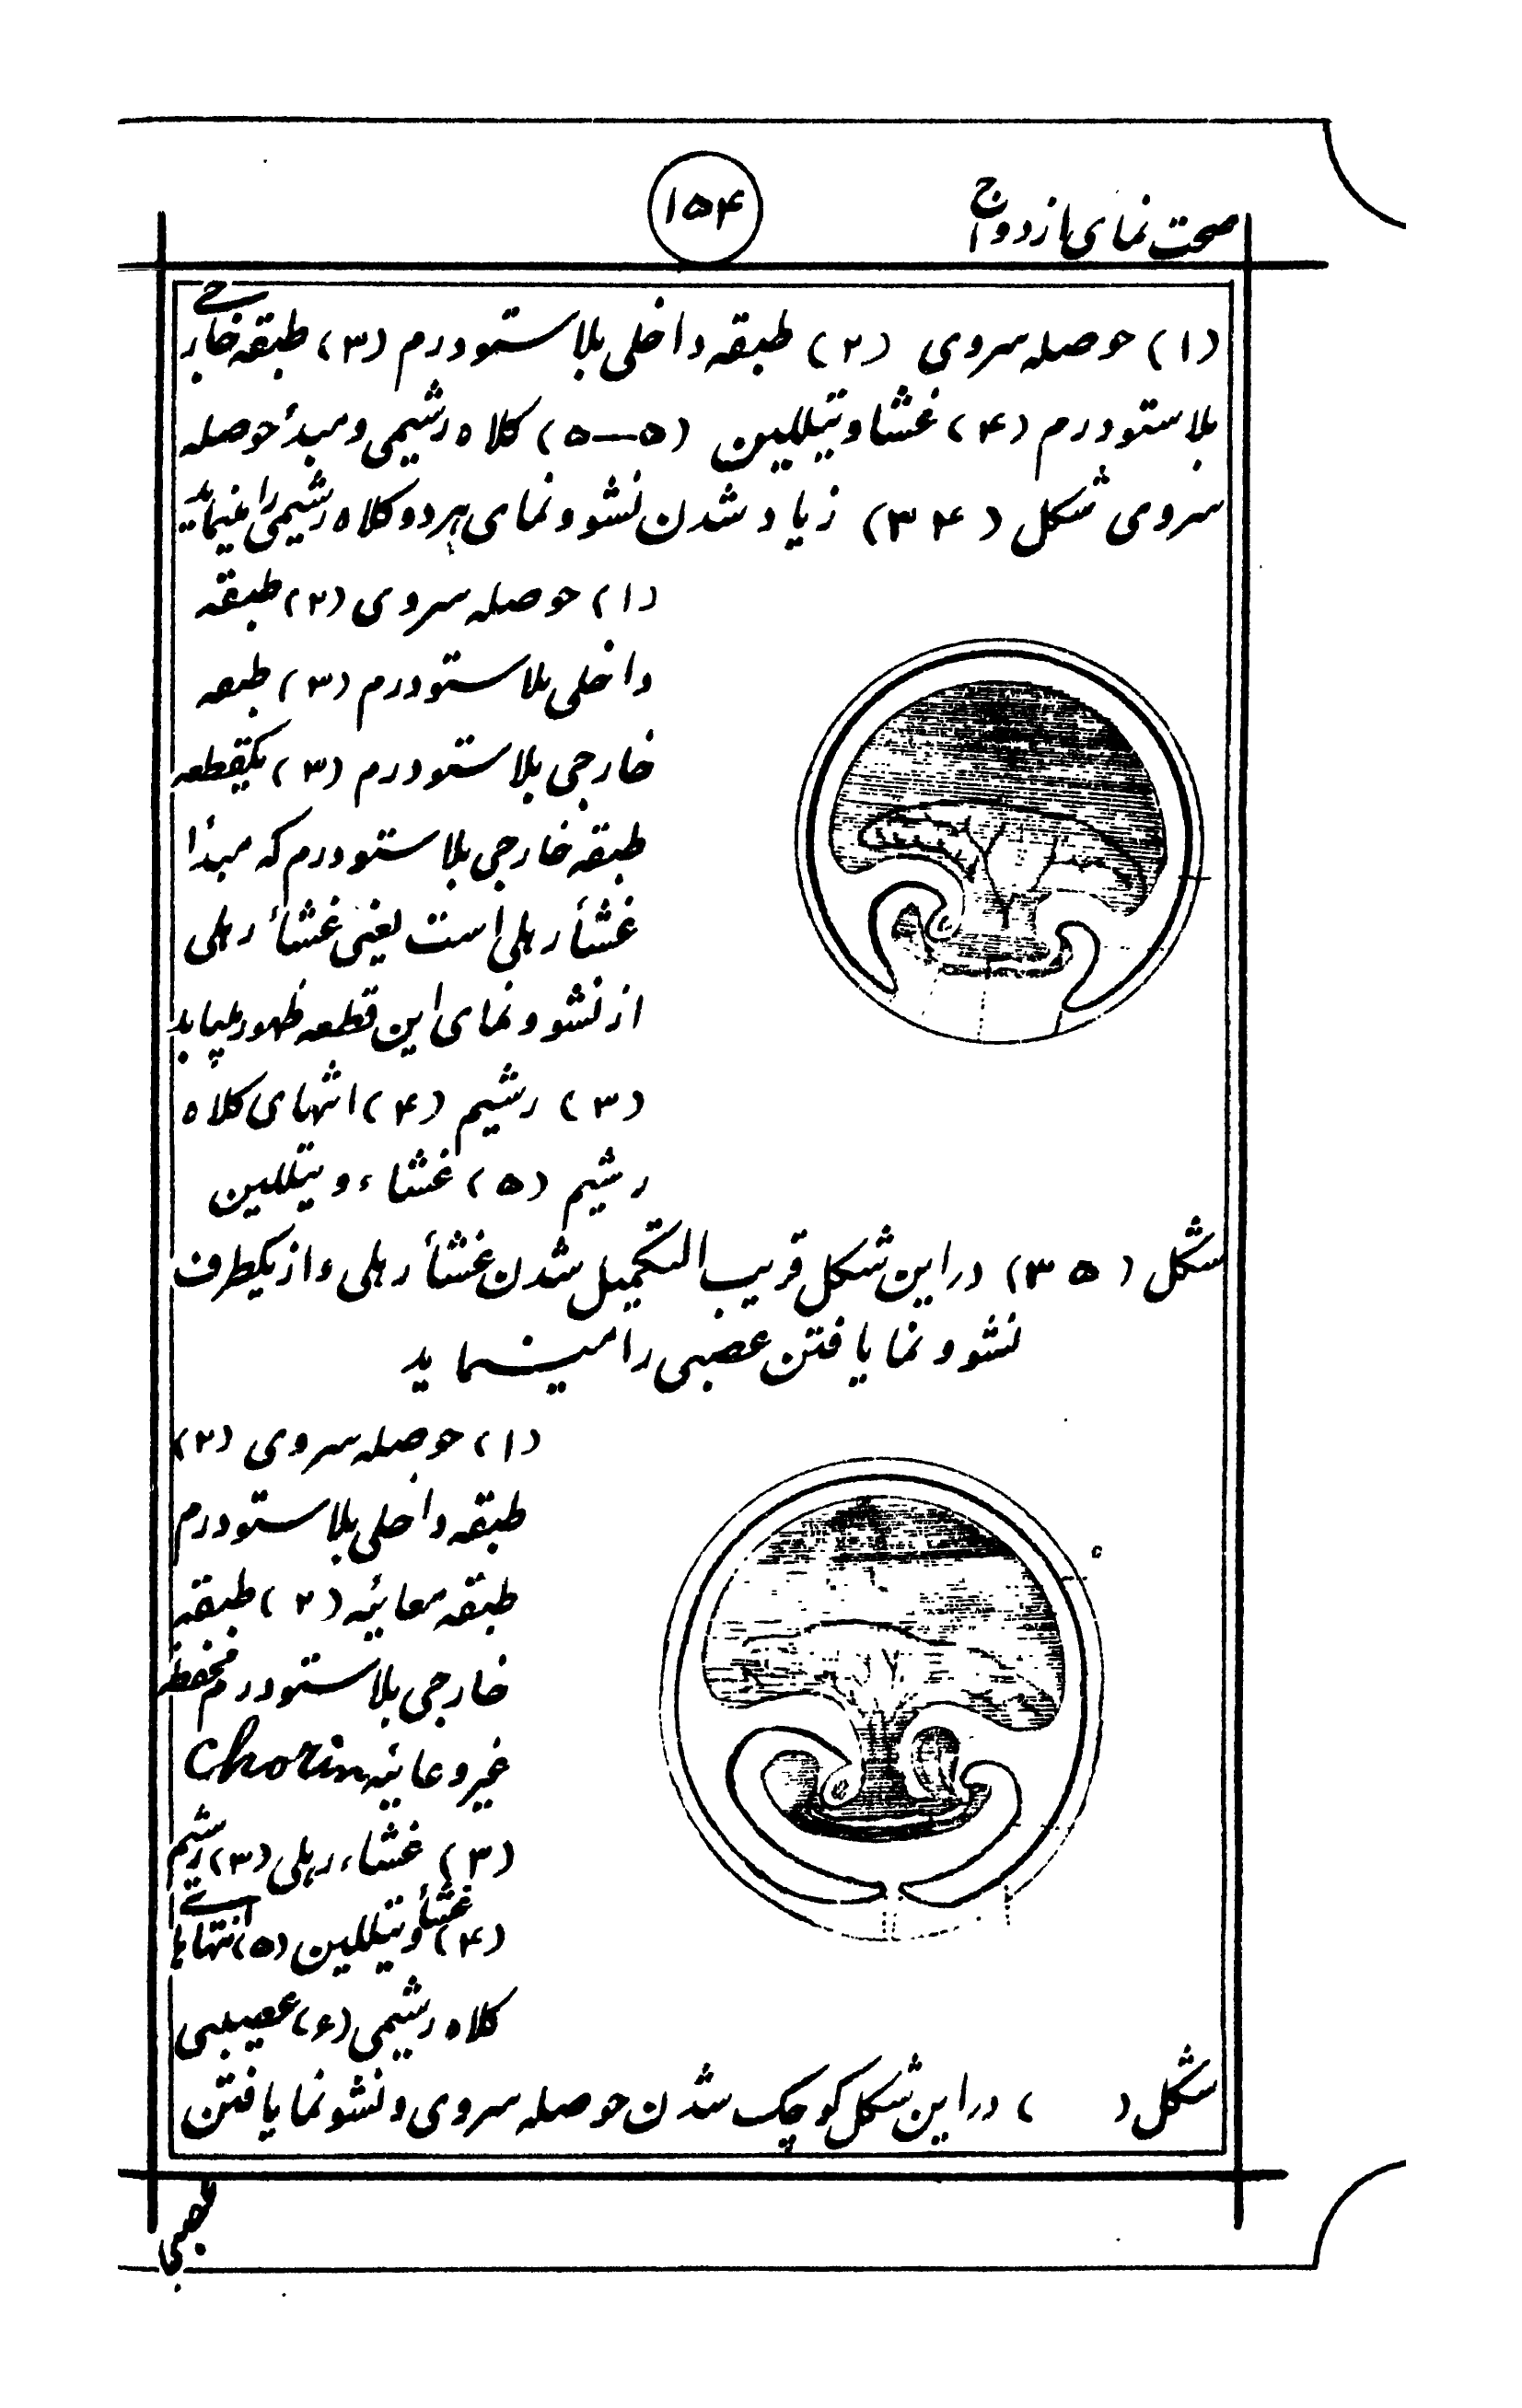 صحت نمای ازدواج
۱۵۴
(۱) حوصله سروی (۲) طبقه داخلی بلاستودرم (۳) طبقه خارجی
بلاستودرم (۴) غشا ویتللین (۵—۵) کلاه رشیمی و مبدأ حوصله
سروی شکل (۳۴) زیاد شدن نشو و نمای هر دو کلاه رشیمی را مینماید
(۱) حوصله سروی (۲) طبقه
داخلی بلاستودرم (۳) طبعه
خارجی بلاستودرم (۳) یکقطعه
طبقه خارجی بلاستودرم که مبدأ
غشأ رهلی است یعنی غشأ رهلی
از نشو و نمای این قطعه ظهور میابد
(۳) رشیم (۴) انتهای کلاه
رشیم (۵) غشاء ویتللین
شکل (۳۵) در این شکل قریب التکمیل شدن غشأ رهلی و از یکطرف
نشو و نما یافتن عضبی را مینماید
(۱) حوصله سروی (۲)
طبقه داخلی بلاستودرم
طبقه معائیه (۲) طبقه
خارجی بلاستودرم
غیر وعائیه Chorin
(۳) غشاء رهلی (۳) رشیم
(۴) غشأ ویتللین (۵) انتهایی
کلاه رشیمی (۶) عصیبی
شکل ( ) در این شکل کوچک شدن حوصله سروی و نشو نما یافتن